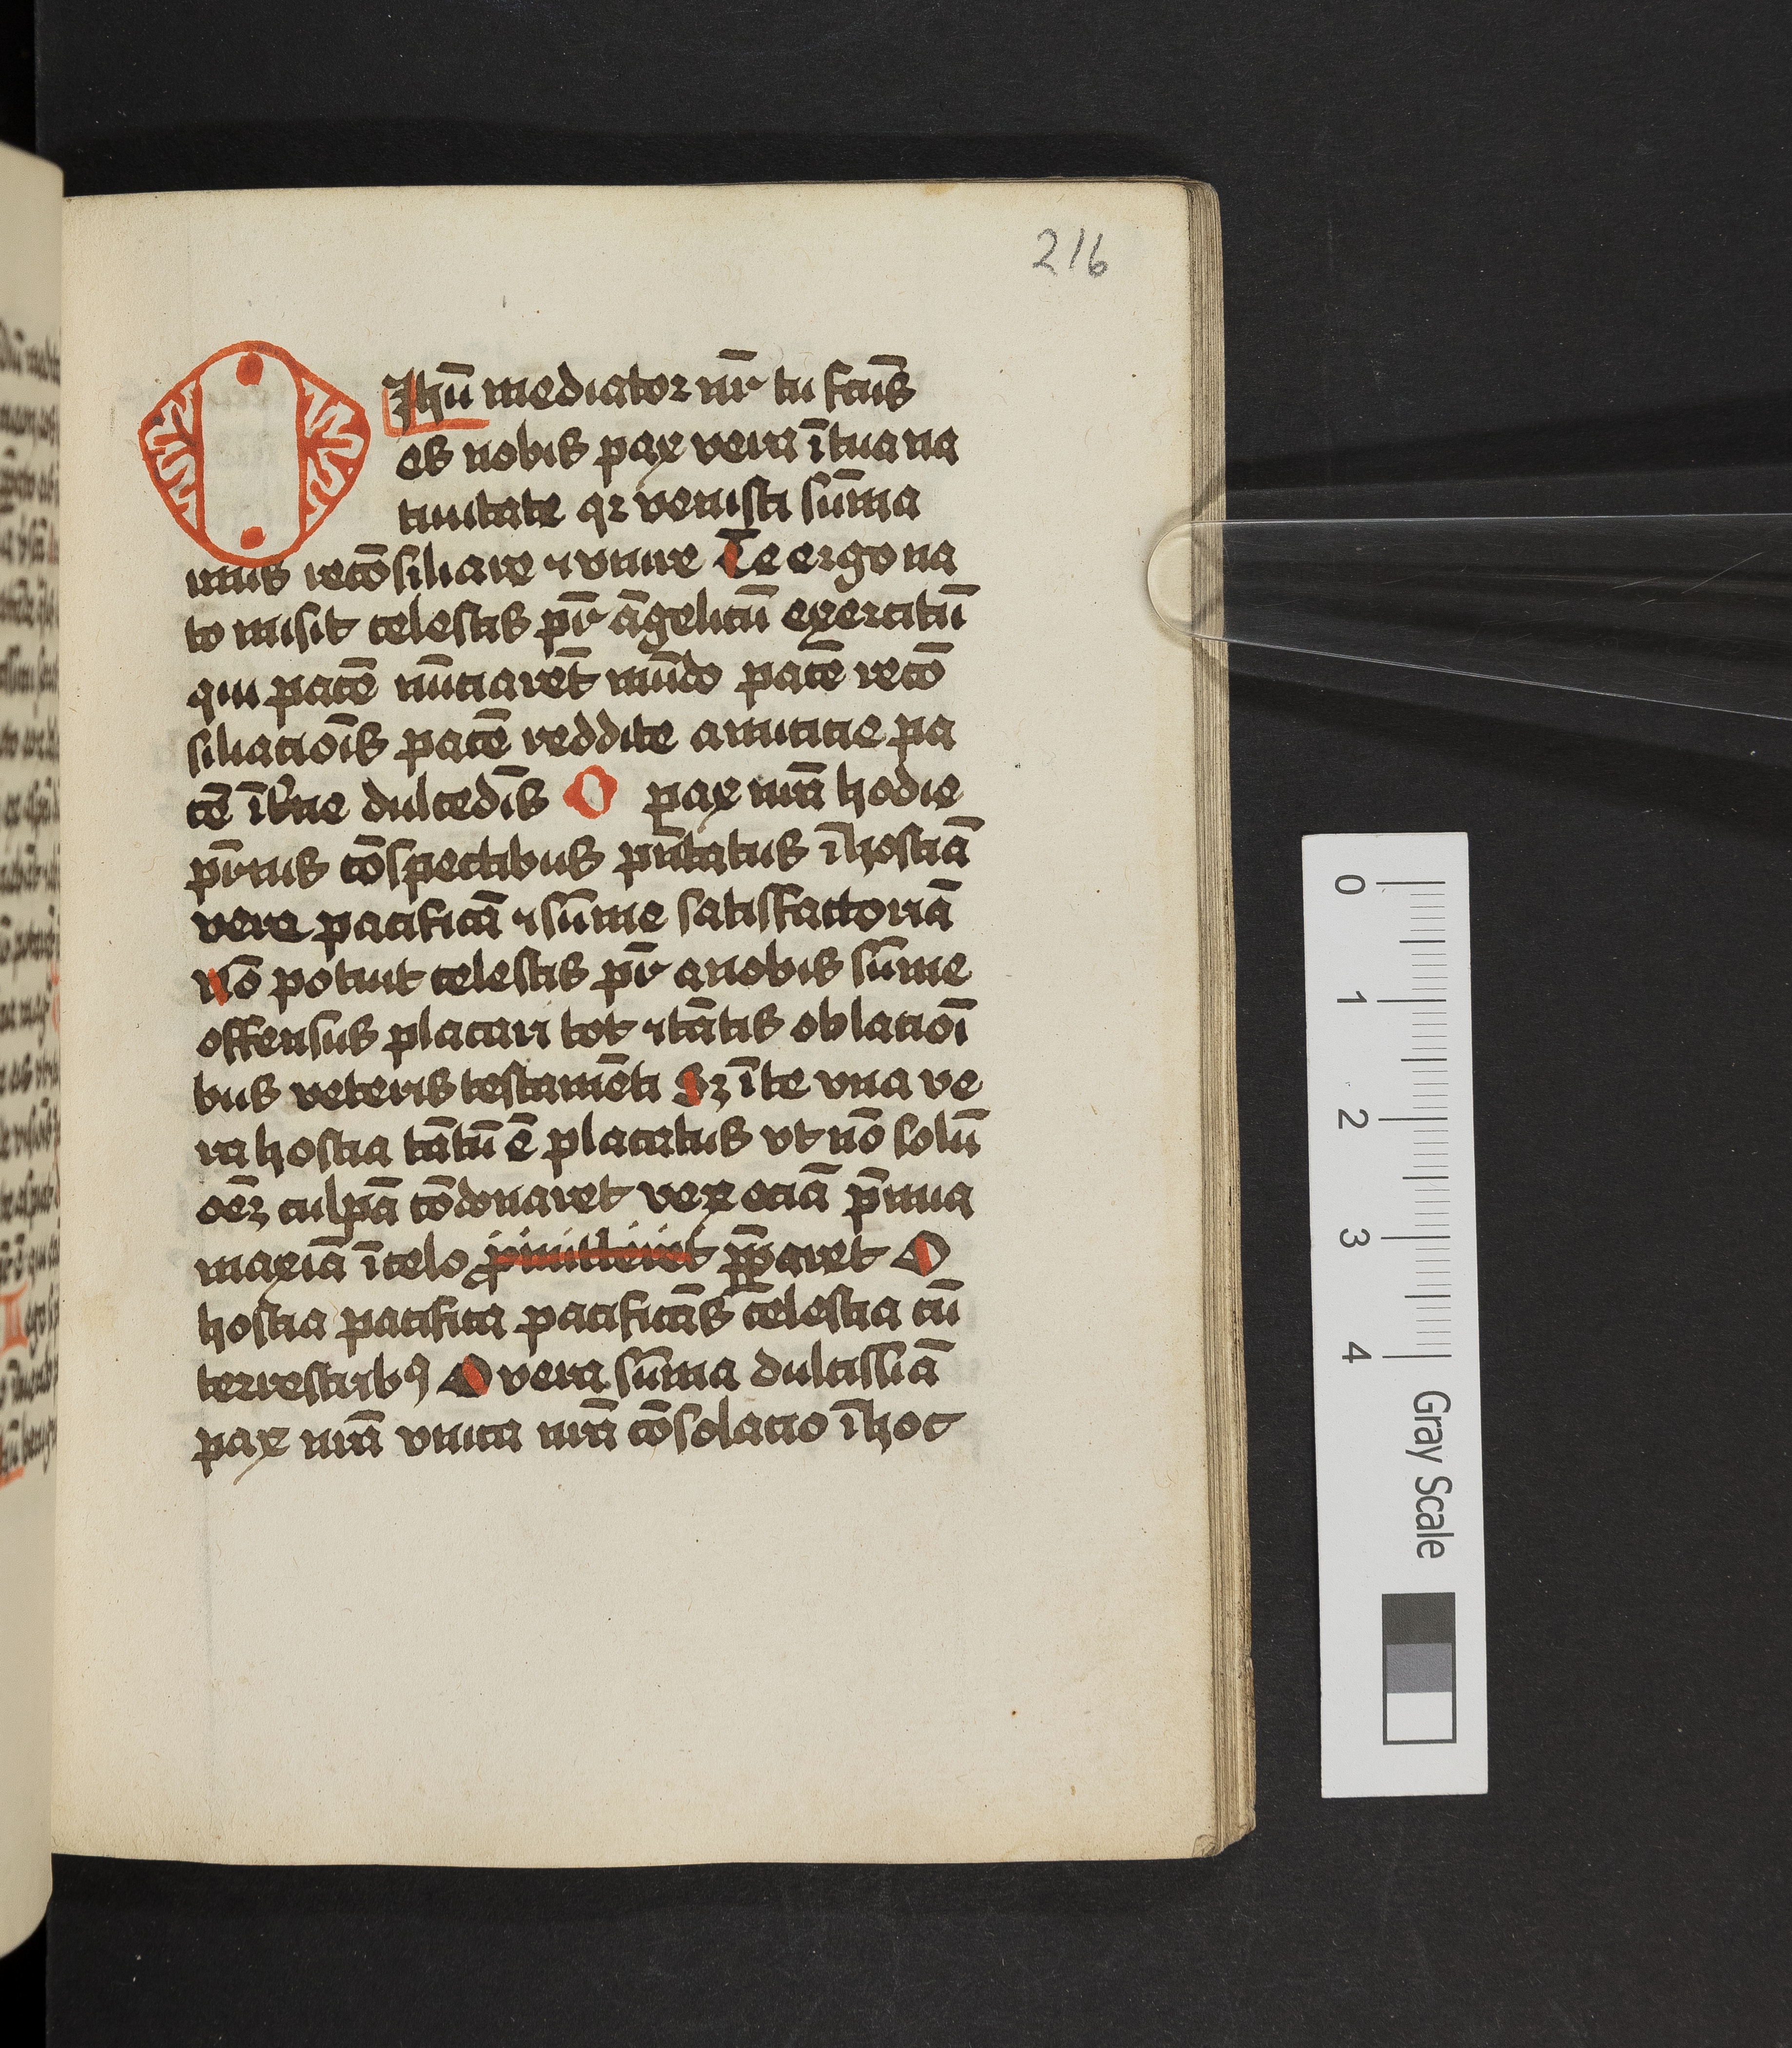 216
O Jhū mediator nr̄ tu fcūs
es nobis pax vera ī tua na
tiuitate qz venisti sūma
rius recōsiliare ⁊ vnire Te ergo na
to misit celestis pr̄ āgelicū exercitū
qui pacē nūciaret̄ mūdo pacē recō
siliacōīs pacē reddite amicicie pa
cē īt̄ne dulcedīs O pax nr̄a hodie
pr̄nis cōspectibus pn̄tatus ī hostiā
vere pacificā ⁊ sūme satisfactoriā
Nō potuit celestis pr̄ a nobis sūme
offensus placari tot ⁊ tātis oblacioī
bus veteris testamēti Sz ī te vna ve
ra hostia tātū ē placatus vt nō solū
oēz culpā cōdonaret ve2 eciā p̄mia
maxīa ī celo p̱paret O
hostia pacifica pacificās celestia cū
terrestribꝰ O vera sūma dulcissīa
pax nr̄a vnica nr̄a cōsolacio ī hoc
0 1 2 3 4 Gray Scale